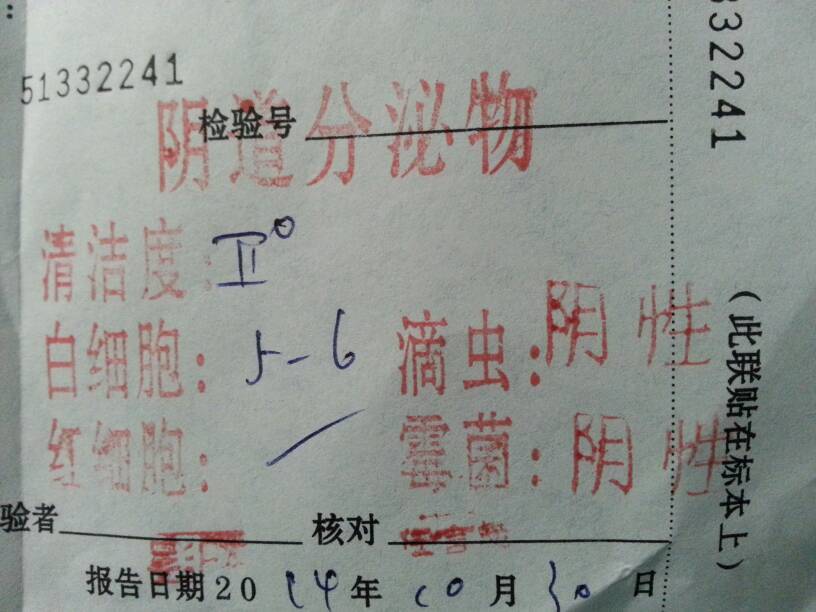 51332241
检验号
阴道分泌物
清洁度：Ⅱ°
白细胞：5-6 滴虫：阴性
红细胞：/ 霉菌：阴性
验者 核对
报告日期2014年10月30日
332241
（此联贴在标本上）